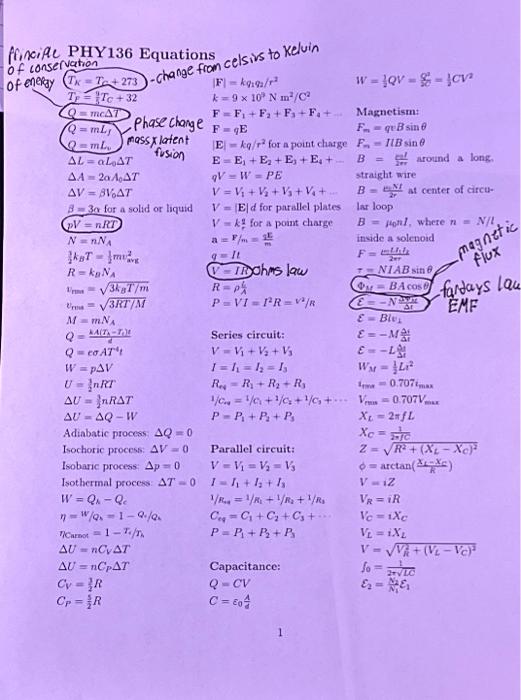 Principle
of conservation
of energy
PHY136 Equations
T_K = T_C + 273
- change from celsius to Kelvin
T_F = 9/5 T_C + 32
Q = mcΔT
Q = mL_f
Q = mL_v
Phase change
mass x latent
fusion
ΔL = αL₀ΔT
ΔA = 2αA₀ΔT
ΔV = βV₀ΔT
β = 3α for a solid or liquid
pV = nRT
N = nN_A
3/2 k_BT = 1/2 mv²_avg
R = k_BN_A
v_rms = √(3k_BT/m)
v_rms = √(3RT/M)
M = mN_A
Q = kA(T₂−T₁)t/d
Q = eσAT⁴t
W = pΔV
U = 3/2 nRT
ΔU = 3/2 nRΔT
ΔU = ΔQ − W
Adiabatic process: ΔQ = 0
Isochoric process: ΔV = 0
Isobaric process: Δp = 0
Isothermal process: ΔT = 0
W = Q_h − Q_c
η = W/Q_h = 1 − Q_c/Q_h
η_Carnot = 1 − T_c/T_h
ΔU = nC_VΔT
ΔU = nC_PΔT
C_V = 3/2 R
C_P = 5/2 R
|F| = kq₁q₂/r²
k = 9 × 10⁹ N m²/C²
F = F₁ + F₂ + F₃ + F₄ + ...
F = qE
|E| = kq/r² for a point charge
E = E₁ + E₂ + E₃ + E₄ + ...
qV = W = PE
V = V₁ + V₂ + V₃ + V₄ + ...
V = |E|d for parallel plates
V = k q/r for a point charge
a = F/m = qE/m
q = It
V = IR
Ohms law
R = ρ L/A
P = VI = I²R = V²/R
Series circuit:
V = V₁ + V₂ + V₃
I = I₁ = I₂ = I₃
R_eq = R₁ + R₂ + R₃
1/C_eq = 1/C₁ + 1/C₂ + 1/C₃ + ···
P = P₁ + P₂ + P₃
Parallel circuit:
V = V₁ = V₂ = V₃
I = I₁ + I₂ + I₃
1/R_eq = 1/R₁ + 1/R₂ + 1/R₃
C_eq = C₁ + C₂ + C₃ + ···
P = P₁ + P₂ + P₃
Capacitance:
Q = CV
C = ε₀ A/d
W = 1/2 QV = Q²/2C = 1/2 CV²
Magnetism:
F_m = qvB sin θ
F_m = IlB sin θ
B = μ₀I/2πr around a long,
straight wire
B = μ₀NI/2r at center of circu-
lar loop
B = μ₀nI, where n = N/l
inside a solenoid
F = μ₀LI₁I₂/2πr
τ = NIAB sin θ
magnetic
flux
Φ_M = BA cos θ
ℰ = −N ΔΦ_M/Δt
fardays law
EMF
ℰ = Blv⊥
ℰ = −M Δi/Δt
ℰ = −L Δi/Δt
W_M = 1/2 Li²
i_rms = 0.707i_max
V_rms = 0.707V_max
X_L = 2πfL
X_C = 1/2πfC
Z = √(R² + (X_L − X_C)²)
φ = arctan((X_L−X_C)/R)
V = iZ
V_R = iR
V_C = iX_C
V_L = iX_L
V = √(V_R² + (V_L − V_C)²)
f₀ = 1/2π√LC
ℰ₂ = N₂/N₁ ℰ₁
1